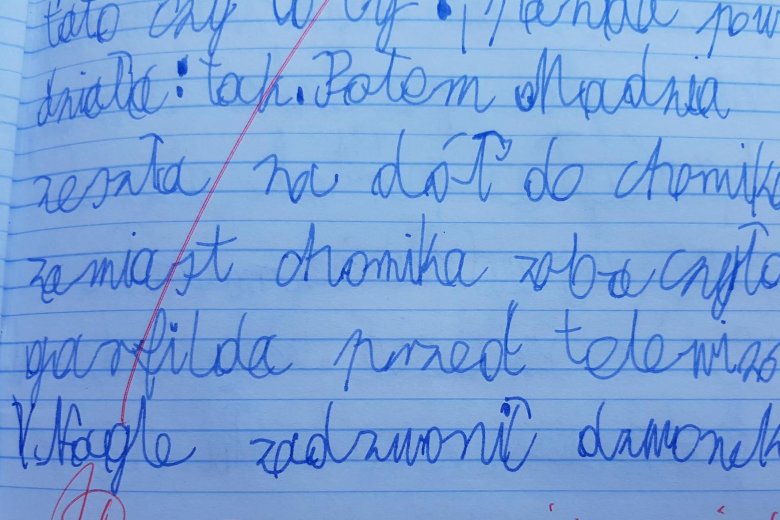 tato czy to ty:
działa: tak. Potem Madzia
zeszła na dół do chomika
zamiast chomika zobaczyła
garfilda przed telewizo
Nagle zadzwonił dzwonek